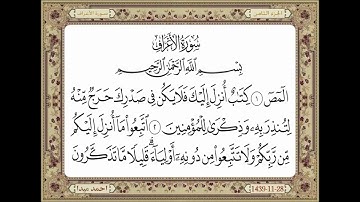 سُورَةُ الأَعْرَافِ
بِسْمِ اللَّهِ الرَّحْمَٰنِ الرَّحِيمِ
الٓمٓصٓ ١ كِتَٰبٌ أُنزِلَ إِلَيْكَ فَلَا يَكُن فِى صَدْرِكَ حَرَجٌ مِّنْهُ
لِتُنذِرَ بِهِۦ وَذِكْرَىٰ لِلْمُؤْمِنِينَ ٢ ٱتَّبِعُوا۟ مَآ أُنزِلَ إِلَيْكُم
مِّن رَّبِّكُمْ وَلَا تَتَّبِعُوا۟ مِن دُونِهِۦٓ أَوْلِيَآءَ ۗ قَلِيلًا مَّا تَذَكَّرُونَ
1439-11-28
احمد ميدا